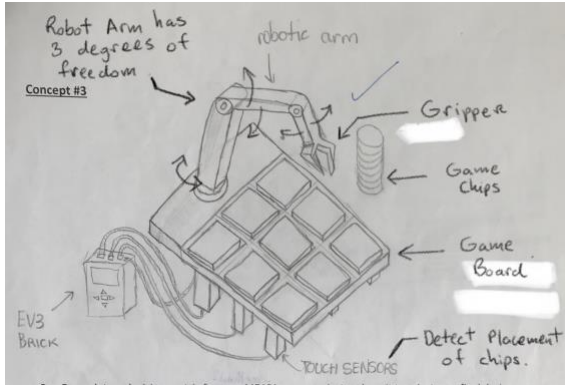 Robot Arm has
3 degrees of
freedom
robotic arm
Concept #3
Gripper
Game
Chips
Game
Board
EV3
BRICK
TOUCH SENSORS
Detect Placement
of chips.